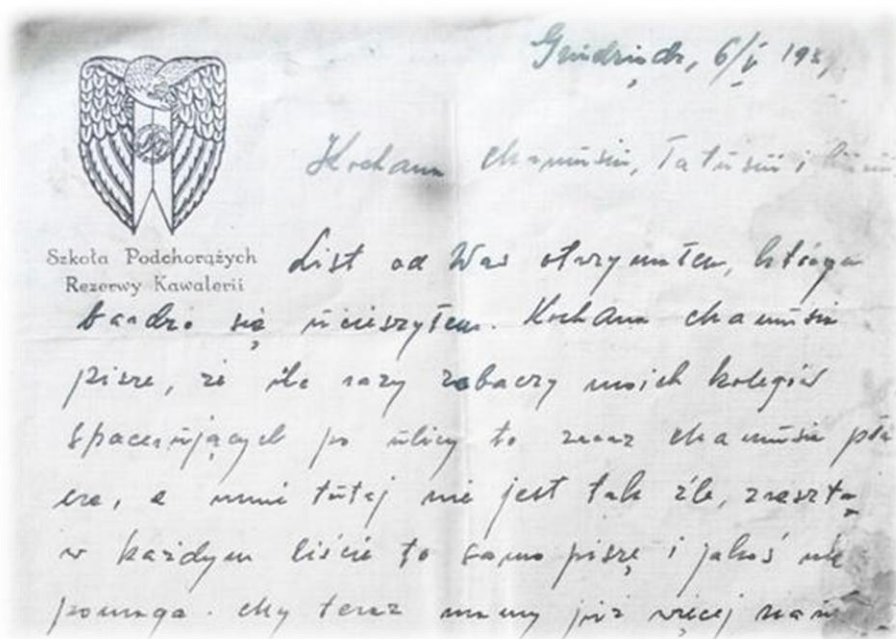 Grudziądz, 6/V 193
Kochana Mamusiu, Tatusiu i
Szkoła Podchorążych
Rezerwy Kawalerii
List od Was otrzymałem, którego
bardzo się ucieszyłem. Kochana Mamusia
pisze, że ile razy zobaczy moich kolegów
spacerujących po ulicy to zaraz Mamusia pła
cze, a mnie tutaj nie jest tak źle, zresztą
w każdym liście to samo piszę i jakoś nie
pomaga. My teraz mamy już więcej